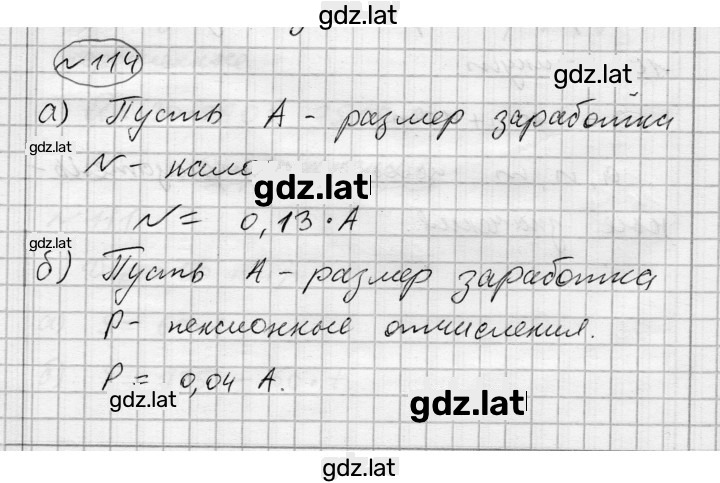 gdz.lat
№114
gdz.lat
а) Пусть А - размер заработка
gdz.lat
N - нало
gdz.lat
N = 0,13 · А
gdz.lat
б) Пусть А - размер заработка
Р - пенсионные отчисления.
Р = 0,04 А.
gdz.lat
gdz.lat
gdz.lat